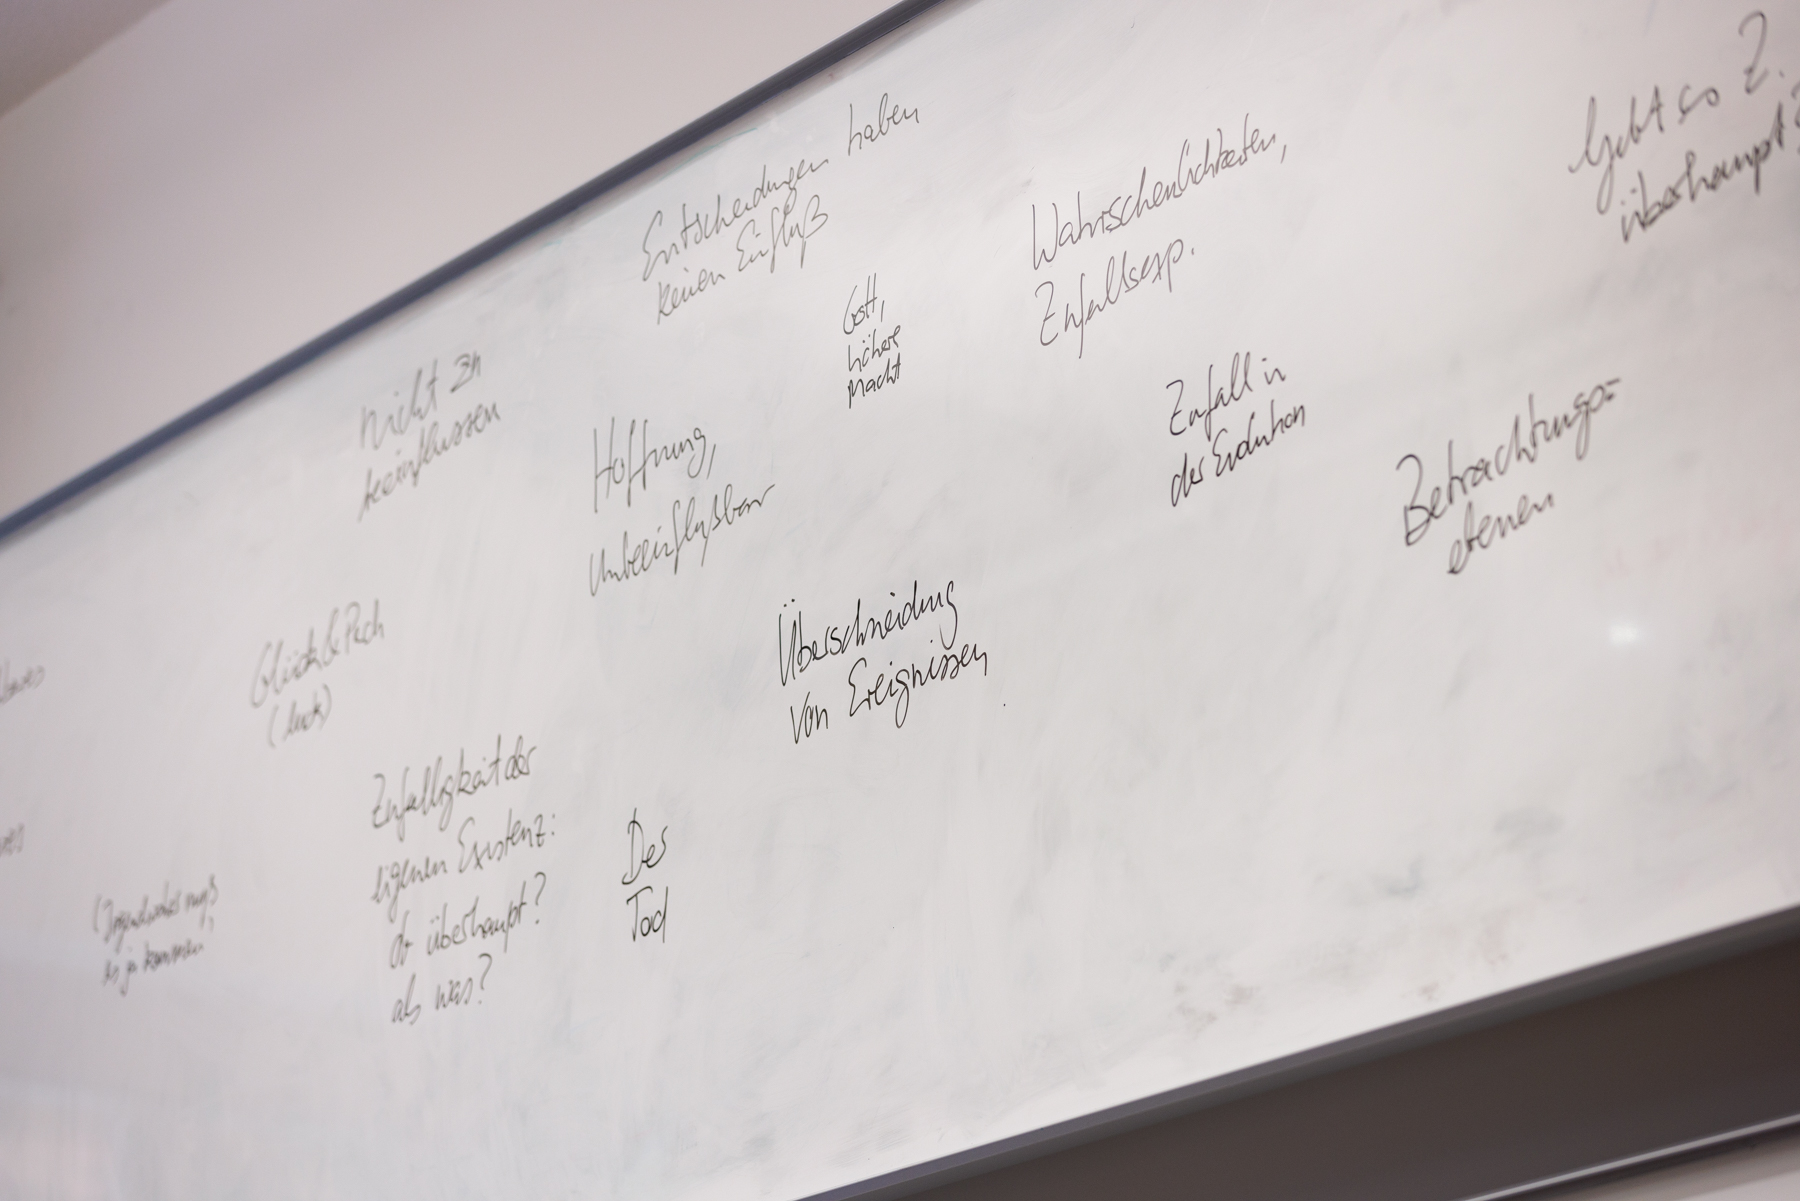 Entscheidungen haben
keinen Einfluß
Wahrscheinlichkeiten,
Zufallsexp.
Gibt es Z.
überhaupt?
Gott,
höhere
Macht
nicht zu
beeinflussen
Hoffnung,
unbeeinflußbar
Zufall in
der Evolution
Betrachtungs=
ebenen
Glück & Pech
(luck)
Überschneidung
von Ereignissen
Zufälligkeit der
eigenen Existenz:
überhaupt?
als was?
Der
Tod
(Irgendwas muß
es ja kommen)